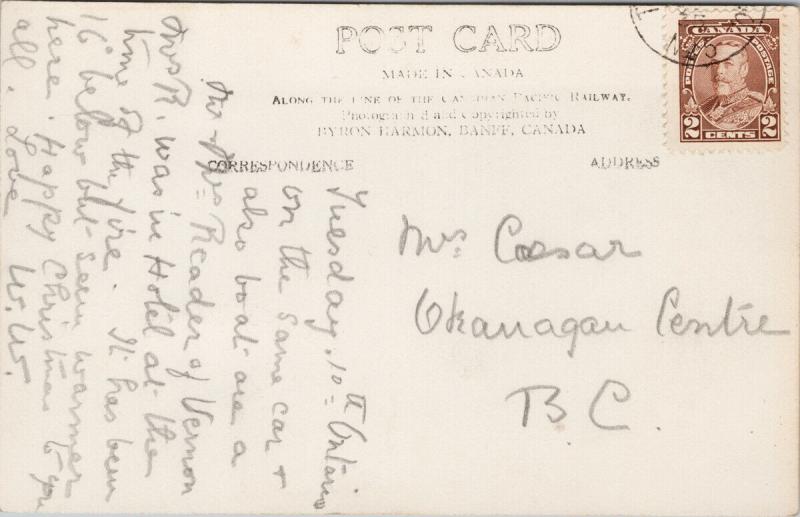 POST CARD
MADE IN CANADA
ALONG THE LINE OF THE CANADIAN PACIFIC RAILWAY.
Photographed and copyrighted by
BYRON HARMON, BANFF, CANADA
CORRESPONDENCE
ADDRESS
CANADA
POSTES POSTAGE
2 CENTS 2
Tuesday. 10th Ontario
On the same car +
also boat are a
Mr + Mrs Reader of Vernon
Mrs R. was in Hotel at the
time of the fire. It has been
16° below but seem warmer
here. Happy Christmas to you
all. Love W.W.
Mrs Caesar
Okanagan Centre
B.C.